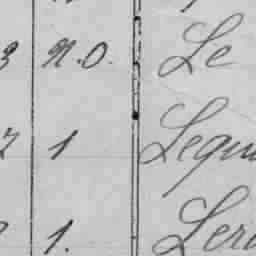 3 N.O. Le
7 1 Lequ
1. Ler